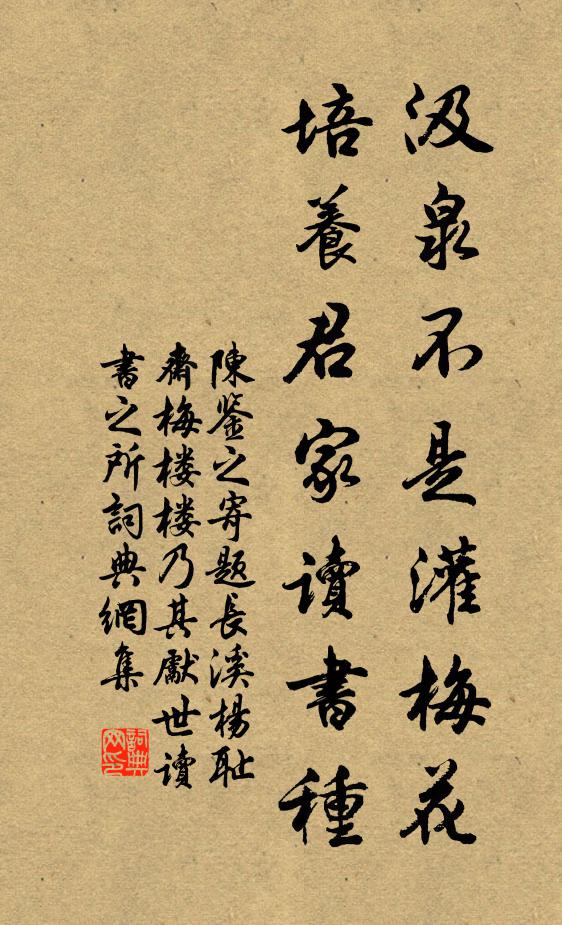 汲泉不是灌梅花
培養君家讀書種
陳鉴之寄题長溪楊耻
齋梅楼楼乃其獻世讀
書之所詞典網集
詞典网